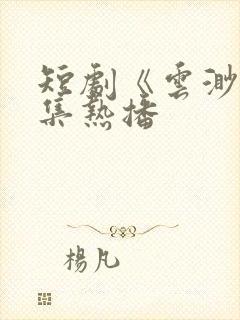 短劇《雲渺
集熱播
楊凡